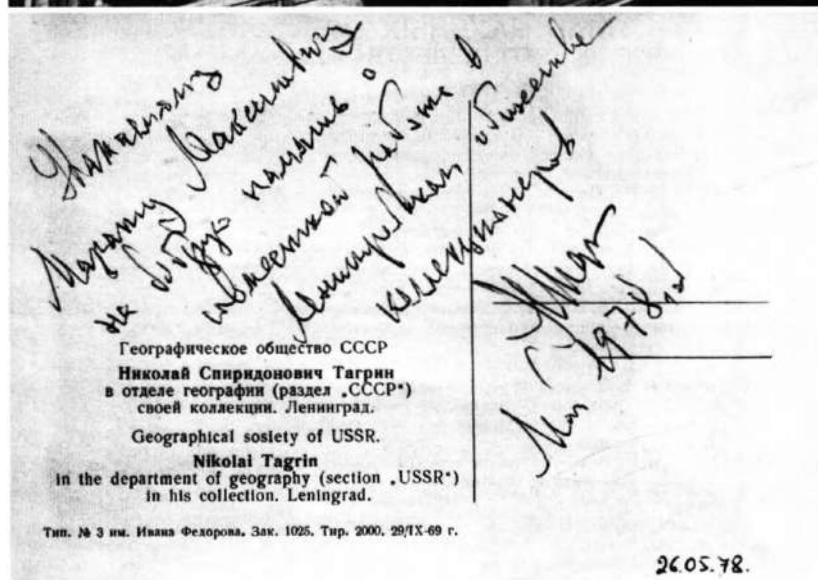 Уважаемому
Марату Максимовичу
на добрую память о
совместной работе в
Ленинградском обществе
коллекционеров
1978 г.
Географическое общество СССР
Николай Спиридонович Тагрин
в отделе географии (раздел „СССР“)
своей коллекции. Ленинград.
Geographical sosiety of USSR.
Nikolai Tagrin
in the department of geography (section „USSR“)
in his collection. Leningrad.
Тип. № 3 им. Ивана Федорова. Зак. 1025. Тир. 2000. 29/IX-69 г.
26.05.78.